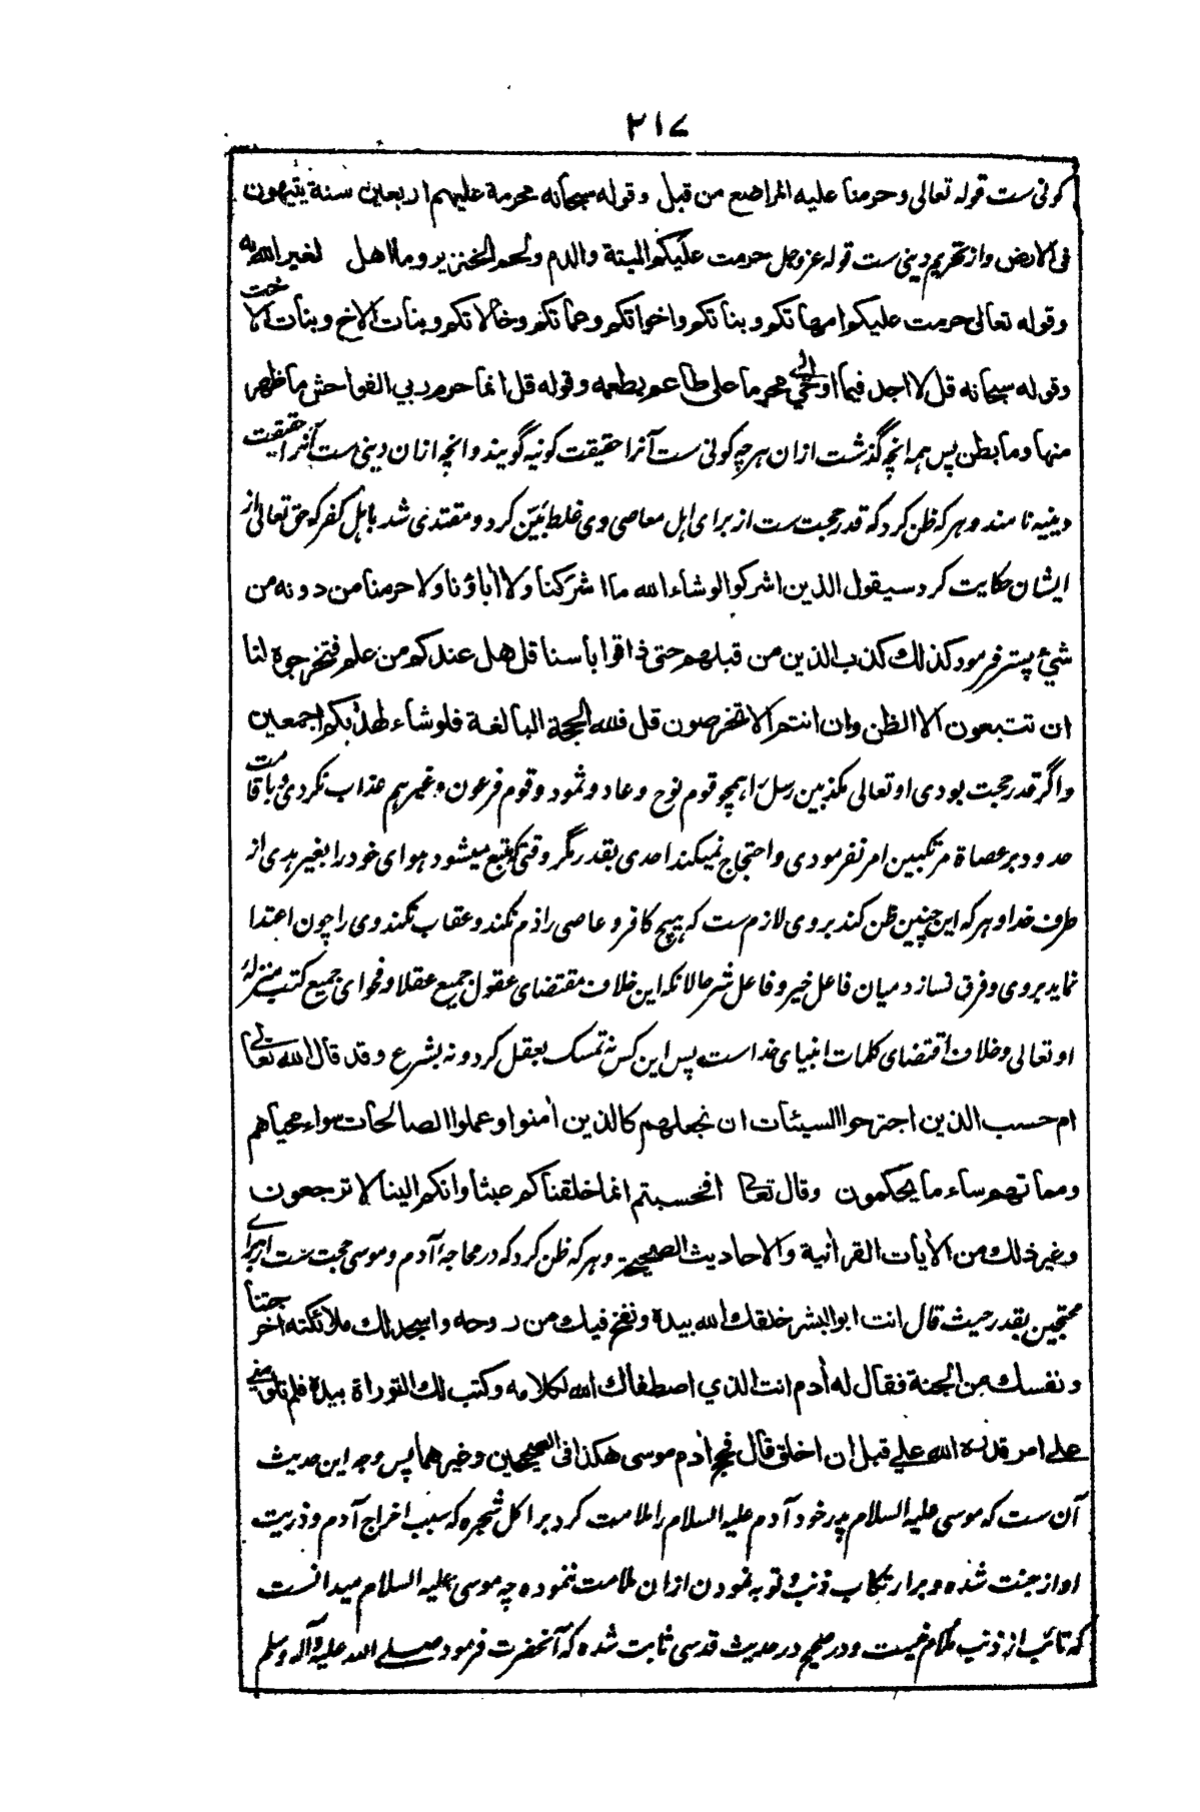 ۲۱۷
کونی ست قوله تعالی وحرمنا علیه المراضع من قبل وقوله سبحانه محرمة علیهم اربعین سنة یتیهون
فی الارض واز تحریم دینی ست قوله عزوجل حرمت علیکم المیتة والدم ولحم الخنزیر وما اهل لغیر الله به
وقوله تعالی حرمت علیکم امهاتکم وبناتکم واخواتکم وعماتکم وخالاتکم وبنات الاخ وبنات الاخت
وقوله سبحانه قل لا اجد فیما اوحی الی محرما علی طاعم یطعمه وقوله قل انما حرم ربی الفواحش ما ظهر
منها وما بطن پس همه انچه گذشت ازان هرچه کونی ست آنرا حقیقت کونیه گویند وانچه ازان دینی ست آنرا حقیقت
دینیه نامند وهر که ظن کرد که قدر حجت ست از برای اهل معاصی وی غلط بَیّن کرد ومقتدی شد باهل کفر که حق تعالی از
ایشان حکایت کرد سیقول الذین اشرکوا لوشاء الله ما اشرکنا ولا اٰباؤنا ولا حرمنا من دونه من
شیٔ پستر فرمود کذلك کذب الذین من قبلهم حتی ذاقوا بأسنا قل هل عندکم من علم فتخرجوه لنا
ان تتبعون الا الظن وان انتم الا تخرصون قل فلله الحجة البالغة فلو شاء لهدٰىکم اجمعین
واگر قدر حجت بودی او تعالی مکذبین رسل را همچو قوم نوح وعاد وثمود وقوم فرعون وغیرهم عذاب نکردی وباقامت
حدود بر عصاة مرتکبین امر نفرمودی واحتجاج نمیکند احدی بقدر مگر وقتیکه متبع میشود هوای خود را بغیر هدی از
طرف خدا وهر که این چنین ظن کند بروی لازم ست که هیچ کافر وعاصی را ذم نکند وعقاب نکند وی را چون اعتدا
نماید بروی وفرق نسازد میان فاعل خیر وفاعل شر حالانکه این خلاف مقتضای عقول جمیع عقلا وفحوای جمیع کتب منزلهٔ
او تعالی وخلاف اقتضای کلمات انبیای خداست پس این کس نه تمسک بعقل کرد ونه بشرع وقد قال الله تعالی
ام حسب الذین اجترحوا السیئات ان نجعلهم کالذین اٰمنوا وعملوا الصالحات سواء محیاهم
ومماتهم ساء ما یحکمون وقال تعالی افحسبتم انما خلقناکم عبثا وانکم الینا لا ترجعون
وغیر ذلك من الاٰیات القراٰنیة والاحادیث الصحیحة وهر که ظن کرد که در محاجه آدم وموسی حجت ست از برای
محتجین بقدر حیث قال انت ابو البشر خلقك الله بیده ونفخ فیك من روحه واسجد لك ملائکته اخرجتنا
ونفسك من الجنة فقال له اٰدم انت الذی اصطفاك الله لکلامه وکتب لك التوراة بیده فلم تلومنی
علی امر قدره الله علی قبل ان اخلق قال فحج اٰدم موسی هکذا فی الصحیحین وغیرهما پس وجه این حدیث
آن ست که موسی علیه السلام پدر خود آدم علیه السلام را ملامت کرد بر اکل شجره که سبب اخراج آدم وذریت
او از جنت شده وبر ارتکاب ذنب وتوبه نمودن ازان ملامت ننموده چه موسی علیه السلام میدانست
که تائب از ذنب ملام نیست ودر صحیح در حدیث قدسی ثابت شده که آنحضرت فرمود صلی الله علیه وآله وسلم